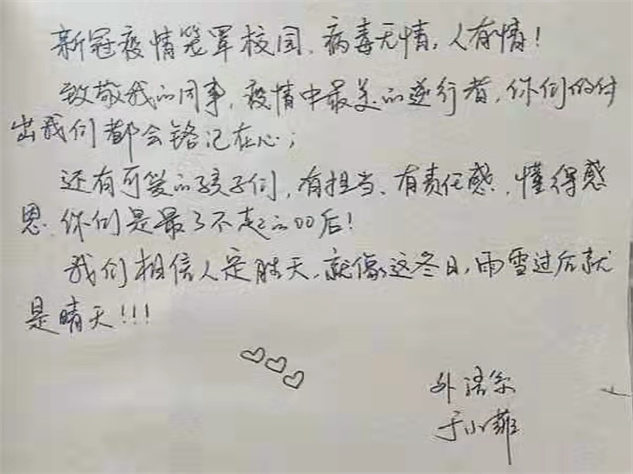 新冠疫情笼罩校园，病毒无情，人有情！
致敬我的同事，疫情中最美的逆行者，你们的付
出我们都会铭记在心；
还有可爱的孩子们，有担当、有责任感、懂得感
恩，你们是最了不起的00后！
我们相信人定胜天，就像这冬日，雨雪过后就
是晴天!!!
外语系
于小雅